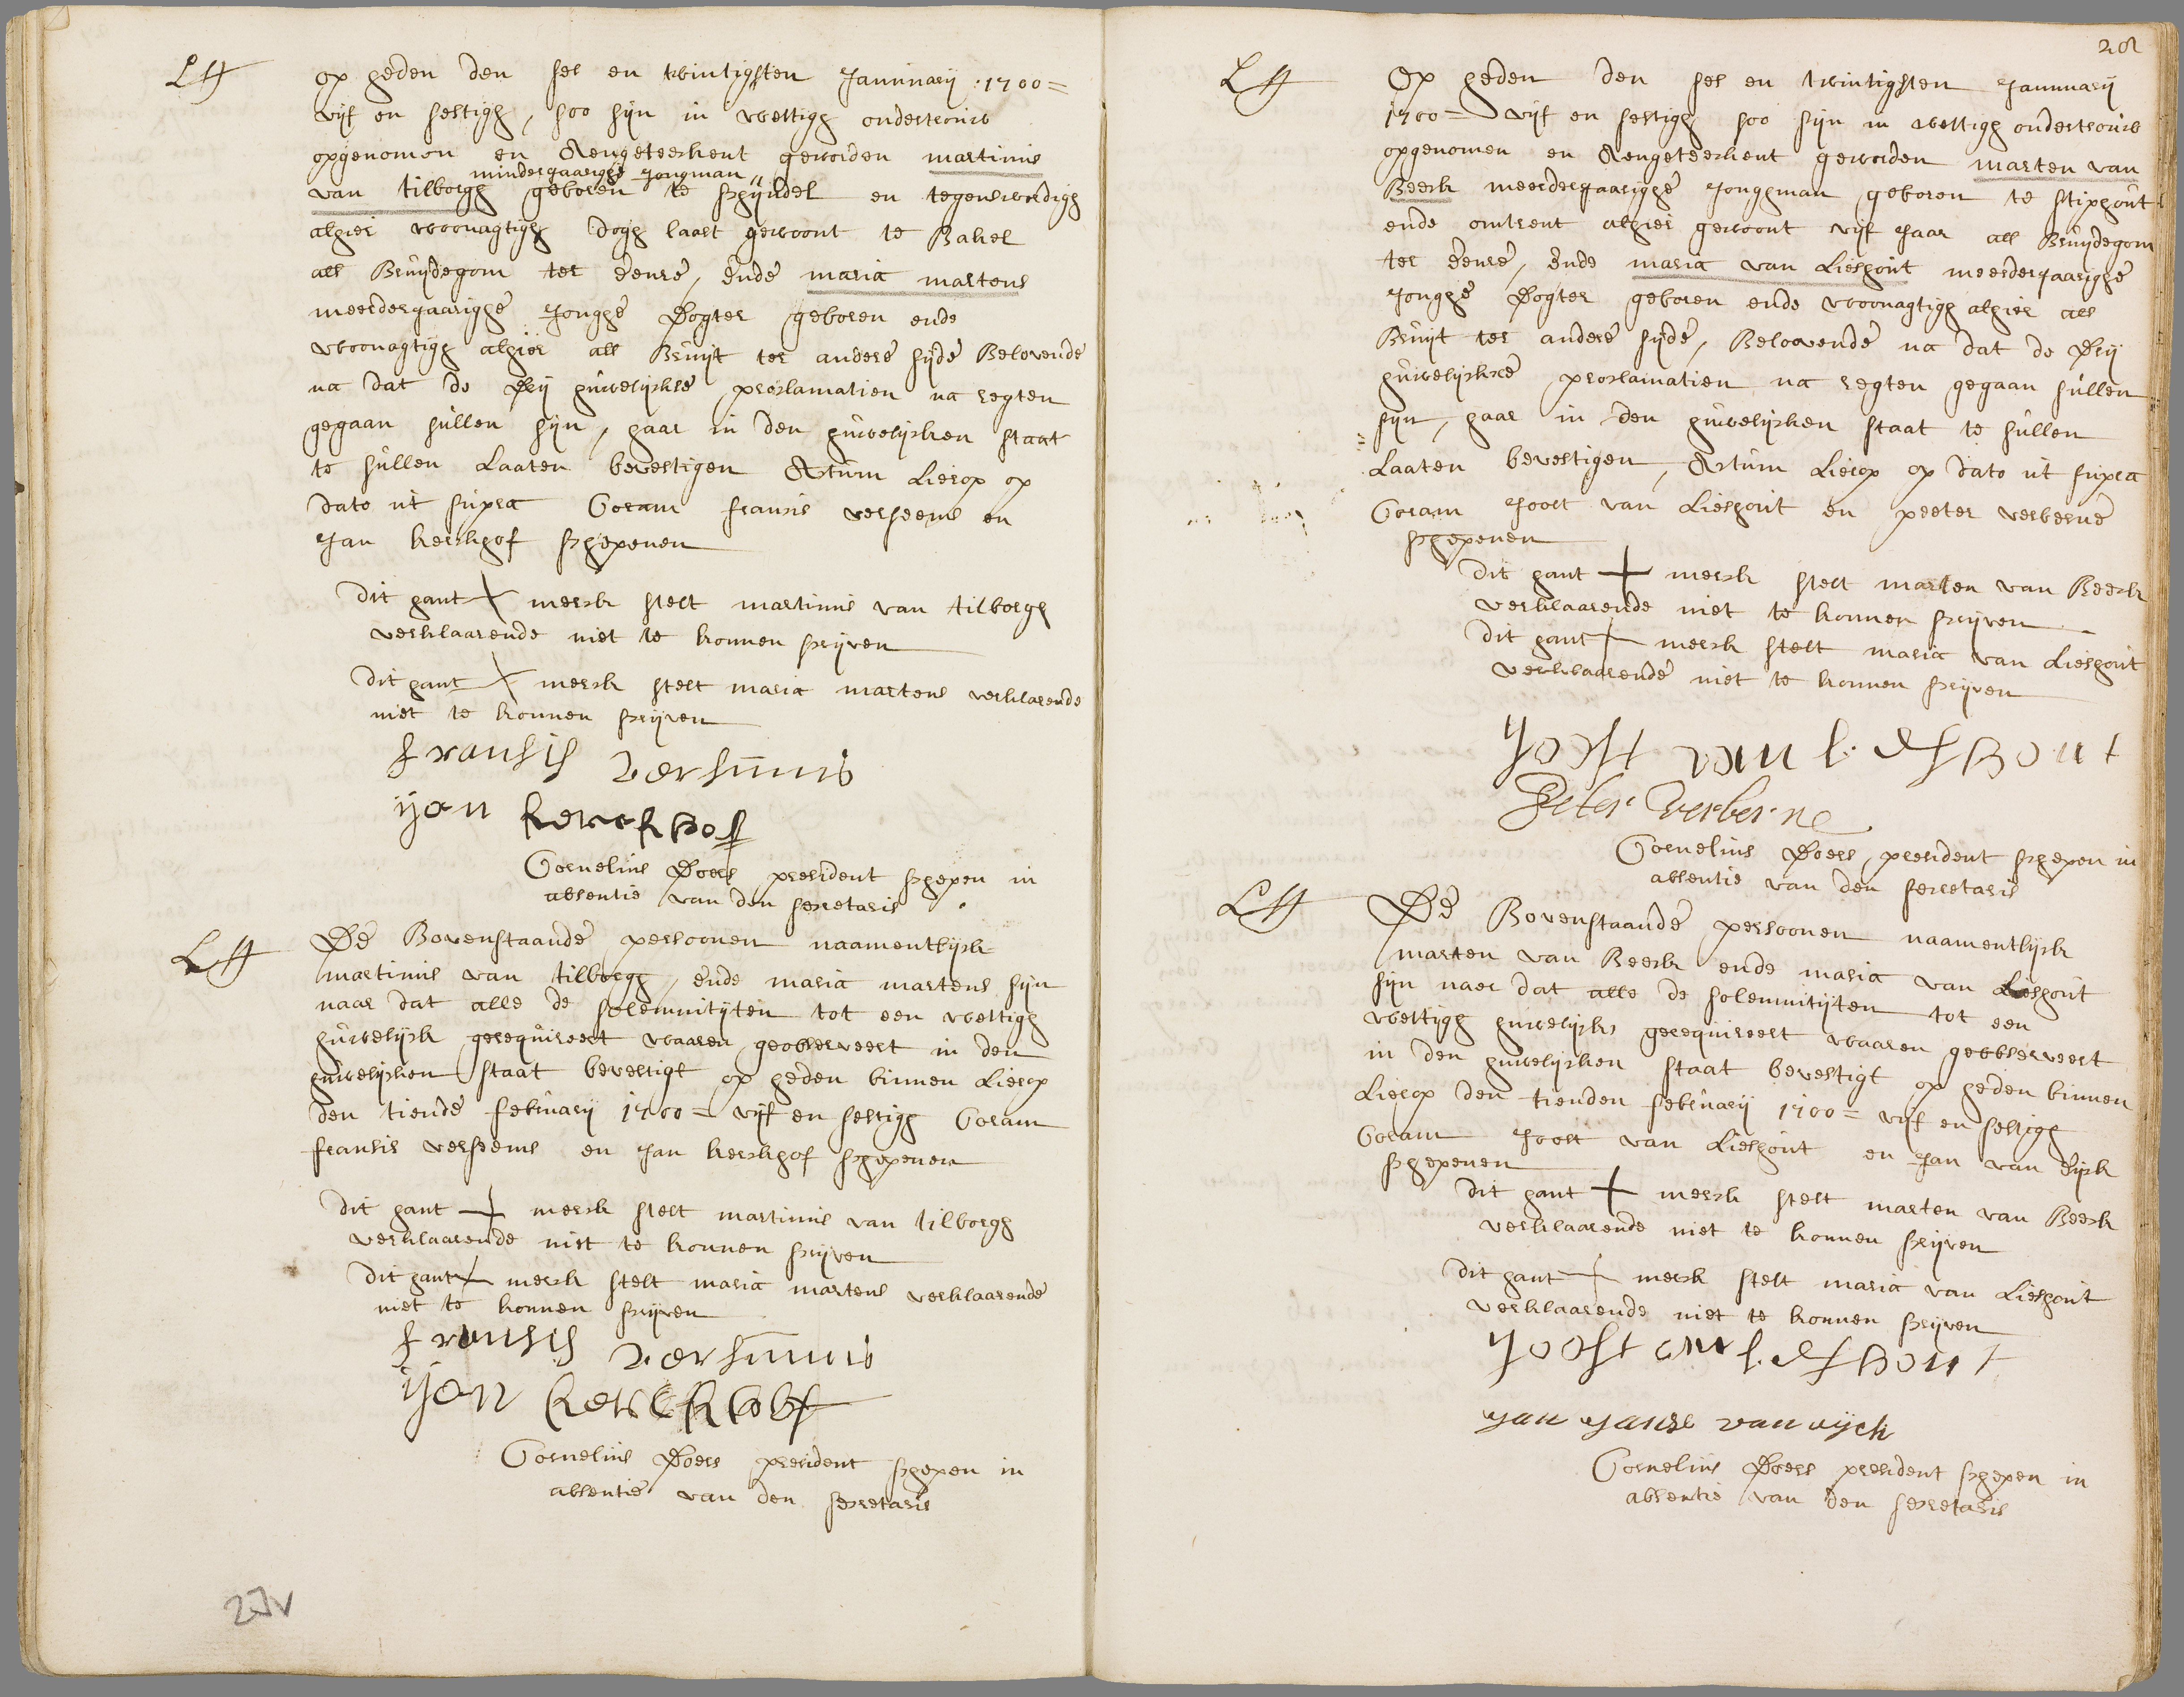 op heden den ses en twintigsten Januuarij 1700=
vijf en sestigh, soo sijn in wettigh ondertrouw
opgenomen en Aengeteeckent geworden martinus
minderjaarighe Jongman
van tilborgh geboren te schijndel en tegenwordigh
alhier woonagtigh dogh laast gewoont te Bakel
als Bruijdegom ter eenre, ende maria martens
meerderjaarighe Jonghe Dogter geboren ende
woonagtigh alhier als Bruijt ter andere sijde Belovende
na dat de Drij huwelijckse proclamatien na regten
gegaan sullen sijn, haar in den huwelijcken staat
te sullen Laaten bevestigen Actum Lierop op
dato ut supra Coram fransis verheems en
Jan kerckhof schepenen
Dit hant + merck stelt martinus van tilborgh
verklaarende niet te konnen scrijven
Dit hant + merck stelt maria martens verklarende
niet te konnen scrijven
fransis
ijan kerckhof
Cornelius Doers president schepen in
absentie van den secretaris
De Bovenstaande persoonen naamentlijck
martinus van tilborgh, ende maria martens sijn
naar dat alle de solemnitijten tot een wettigh
huwelijck gerequireert waaren geobserveert in den
huwelijcken staat bevestigt op heden binnen Lierop
den tiende februarij 1700= vijf en sestigh Coram
fransis verheems en Jan kerckhof schepenen
Dit hant + merck stelt martinus van tilborgh
verklaarende niet te konnen scrijven
Dit hant + merck stelt maria martens verklaarende
niet te konnen scrijven
fransis
ijan kerckhof
Cornelius Doers president schepen in
absentie van den secretaris
27v
28
Op heden den ses en twintigsten Januuarij
1700= vijf en sestigh soo sijn in wettigh ondertrouw
opgenomen en Aengeteeckent geworden marten van
Beeck meerderjaarighe Jonghman geboren te stiphout
ende omtrent alhier gewoont vijf Jaar als Bruijdegom
ter eenre, ende maria van Lieshout meerderjaarighe
Jonghe Dogter geboren ende woonagtigh alhier als
Bruijt ter andere sijde, Beloovende na dat de Drij
huwelijckse proclamatien na regten gegaan sullen
sijn, haar in den huwelijcken staat te sullen
Laaten bevestigen, Actum Lierop op dato ut supra
Coram Joost van Lieshout en peeter verberne
schepenen
Dit hant + merck stelt marten van Beeck
verklaarende niet te konnen scrijven
Dit hant + merck stelt maria van Lieshout
verklaarende niet te konnen scrijven
Joost van Lieshout
Peter verberne
Cornelius Doers, president schepen in
absentie van den secretaris
De Bovenstaande persoonen naamentlijck
marten van Beeck ende maria van Lieshout
sijn naer dat alle de solemnitijten tot een
wettigh huwelijcks gerequireert waaren geobserveert
in den huwelijcken staat bevestigt op heden binnen
Lierop den tienden februarij 1700= vijf en sestigh
Coram Joost van Lieshout en Jan van Dijck
schepenen
Dit hant + merck stelt marten van Beeck
verklaarende niet te konnen scrijven
Dit hant + merck stelt maria van Lieshout
verklaarende niet te konnen scrijven
Joost van Lieshout
Jan Janse van dijck
Cornelius Doers president schepen in
absentie van den secretaris